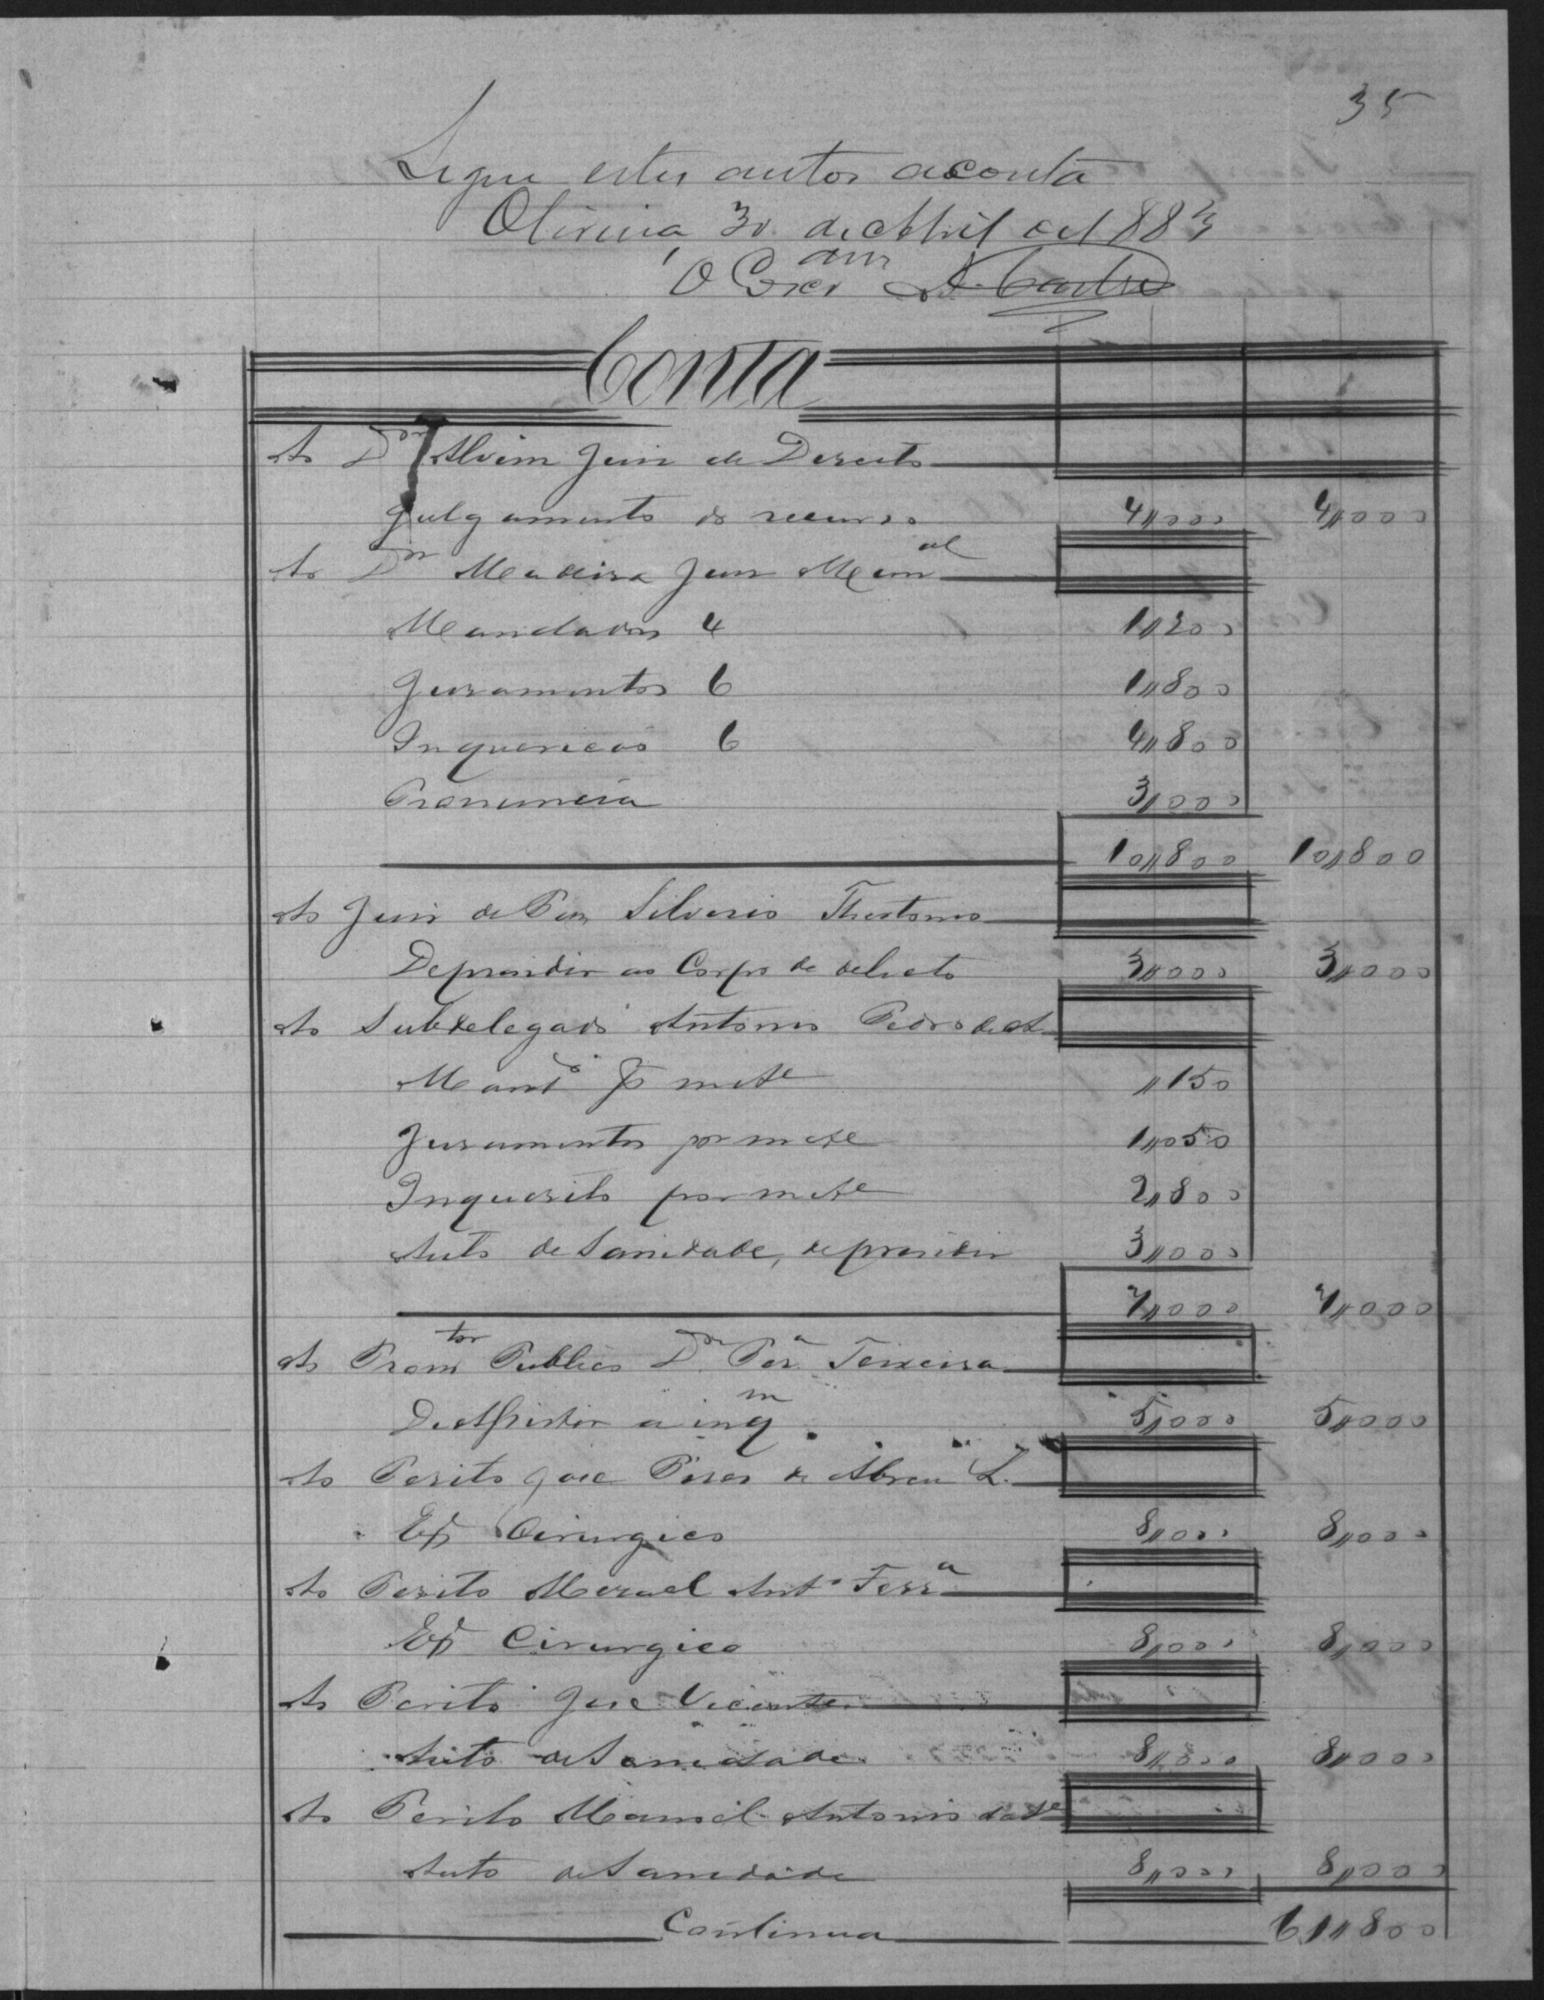 35
Segue estes autos aconta
Oliveira 30 de Abril de 1883
O Escr am D. Castro
Conta
Ao Dor Alvim Juiz de Direito
Julgamento do recurso 4,,000 4,,000
Ao Dor Madeira Juiz Munal
Mandados 4 1,,200
Juramentos 6 1,,800
Inquericoes 6 4,,800
Pronuncia 3,,000
10,,800 10,,800
Ao Juiz de Paz Silverio Theotonio
De prezidir ao Corpo de delicto 3,,000 3,,000
Ao Subdelegado Antonio Pedro de A
Mando por mete ,,150
Juramentos por mete 1,,050
Inquerito por mete 2,,800
Auto de Sanidade, de prezidir 3,,000
7,,000 7,,000
Ao Promtor Publico Dor Pera Teixeira
De Assistir a inqm 5,,000 5,,000
Ao Perito Jose Pires de Abreu L.
Ex Cirurgico 8,,000 8,,000
Ao Perito Manoel Anto Ferra
Ex Cirurgico 8,,000 8,,000
Ao Perito Jose Vicente
Auto de Sanidade 8,,000 8,,000
Ao Perito Manoel Antonio
Auto de Sanidade 8,,000 8,,000
Continua 61,,800